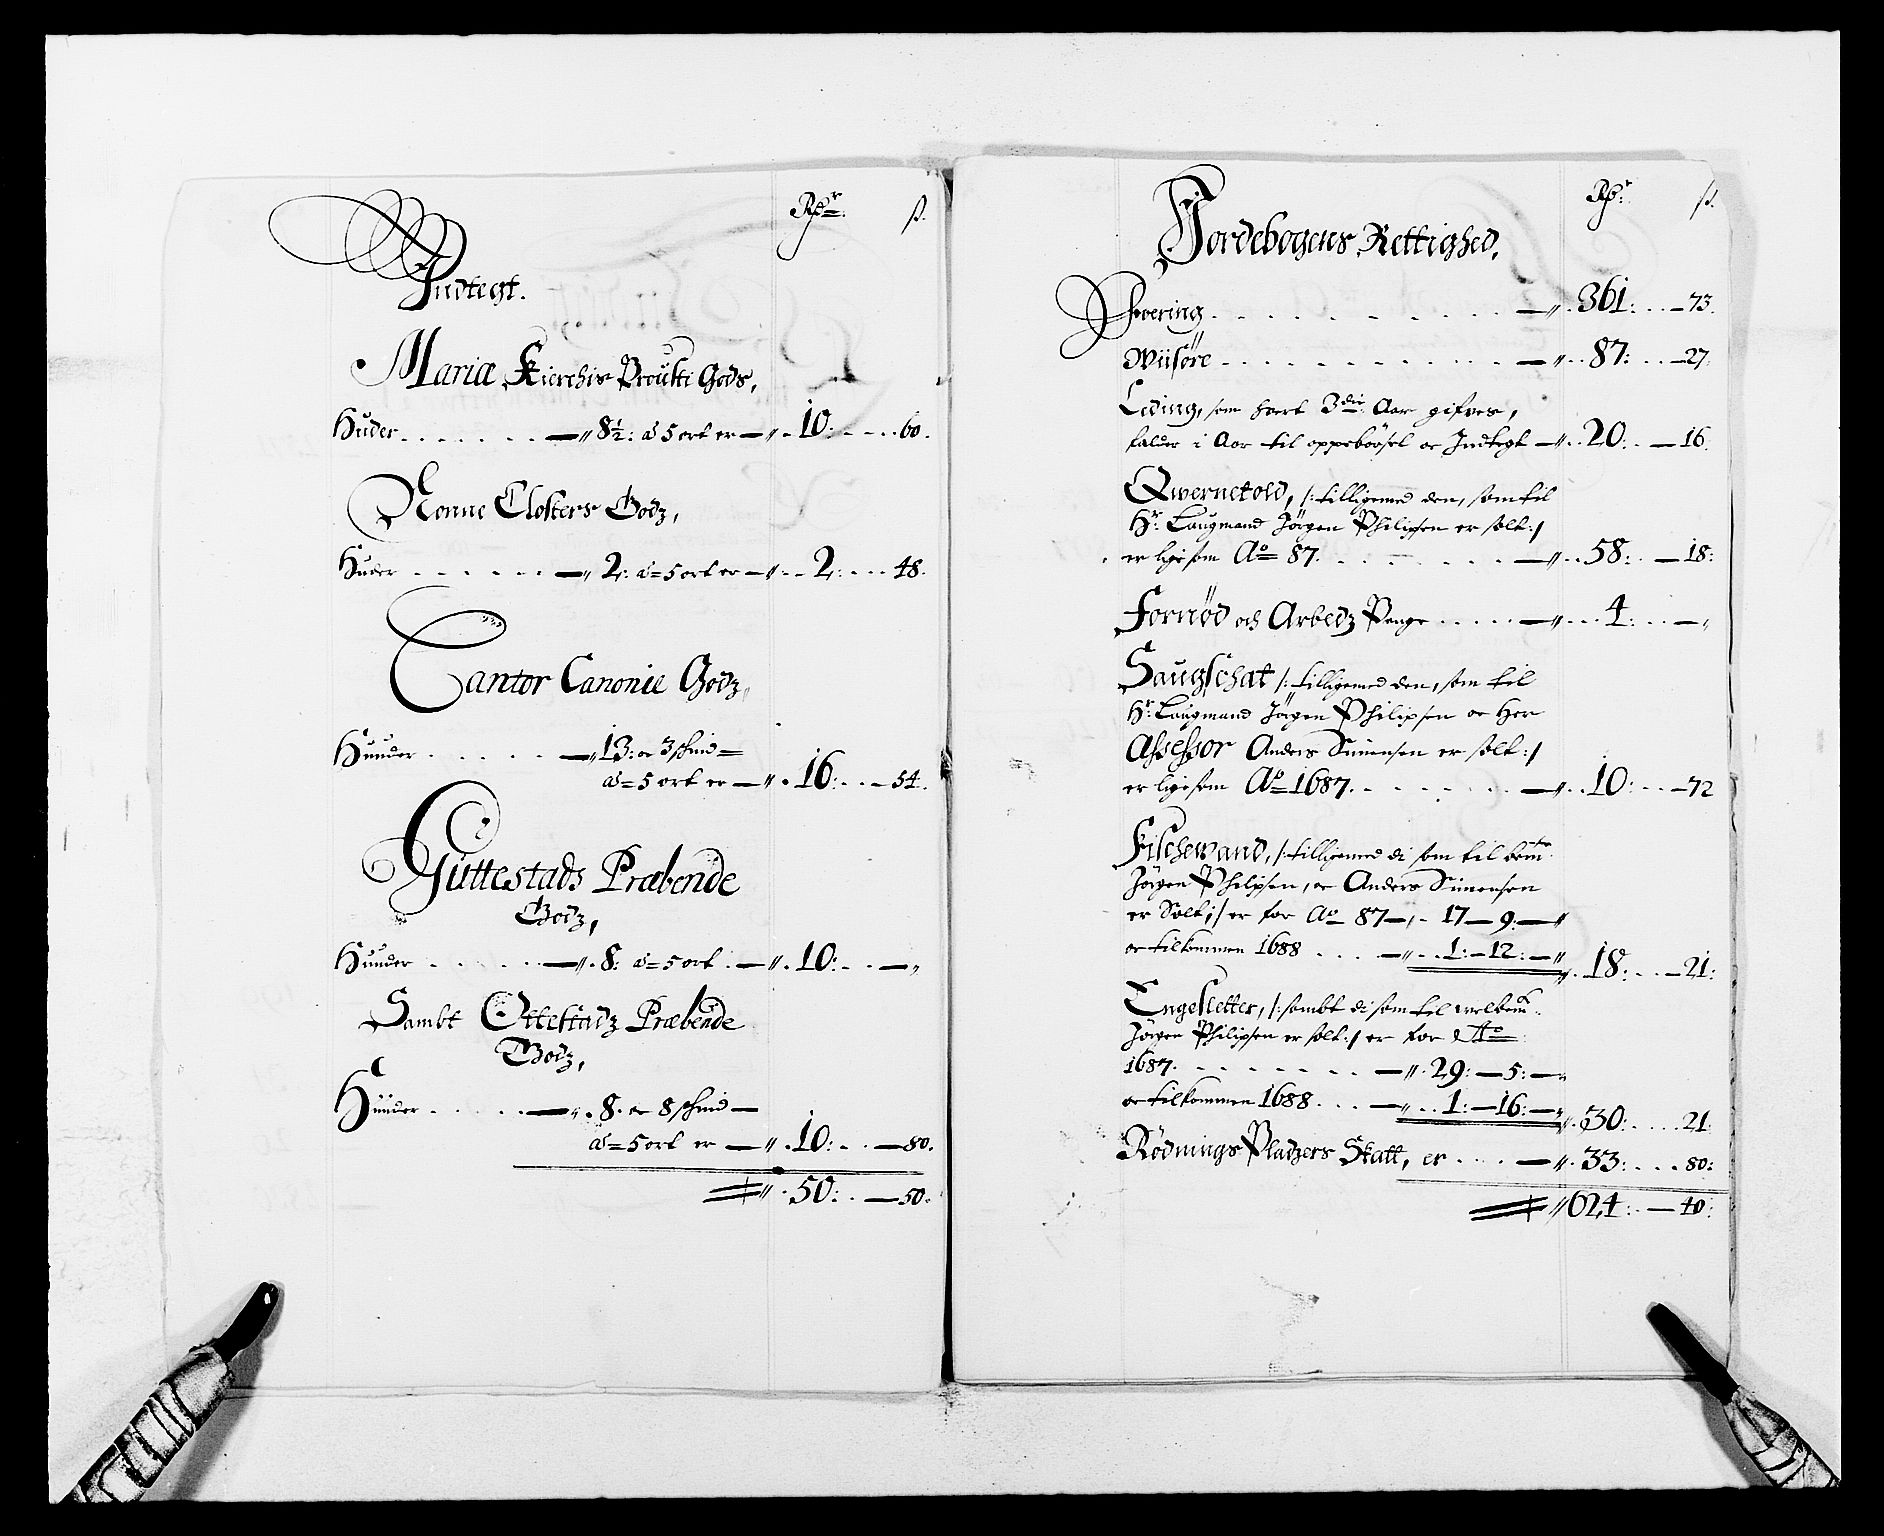 Rdr. ß.
Indtegt.
Mariæ Kierchis Prousti Gods,
Huder . . . . . . . — 8½: à 5 ort er — 10: . . 60.
Nonne Closters Godz,
Huder . . . . . . — 2: à 5 ort er — 2: . . 48.
Cantor Canonie Godz,
Huuder . . . . . — 13: oc 3 skind
à 5 ort er — 16: . . 54.
Guttestads Præbende
Godz,
Huuder . . . . . — 8: à 5 ort . — 10: . . —
Sambt Ottestadz Præbende
Godz,
Huuder . . . . . — 8. oc 8 skind —
à 5 ort er — 10: . . 80.
50: . . 50.
Rdr. ß.
Jordebogens Rettighed.
Foering . . . . . . . . . — 361: . . 73.
Wiisöre . . . . . . . . . — 87: . . 27.
Leding, som hvert 3die Aar gifves,
falder i Aar til oppebörsel oc Indtegt — 20: . . 16.
Qwernetold, /: tilligemed den, som til
Hr. Laugmand Jörgen Philipsen er solt :/
er ligesom Ao 87. . . . . . . — 58: . . 18:
Fornöd och Arbedz Penge . . . . . — 4: . . —
Saugschat /: tilligemed den, som til
Hr. Laugmand Jörgen Philipsen oc Her
Assessor Anders Simensen er solt :/
er ligesom Ao 1687. . . . . . — 10: . . 72
Fischevand, /: tilligemed di som til bemte.
Jörgen Philipsen, oc Anders Simensen
er Solt :/ er for Ao 87 — 17 — 9: —
oc tilkommen 1688 . . . . — 1: — 12: —
18: . . 21:
Engesletter, /: sambt di som til welbem.
Jörgen Philipsen er solt :/ er for Ao
1687. . . . . . . . — 29: — 5: —
oc tilkommen 1688 . . . — 1: — 16: — 30: . . 21.
Rödnings Pladzers Skatt, er . . . . — 33: . . 80:
624: . — 40: